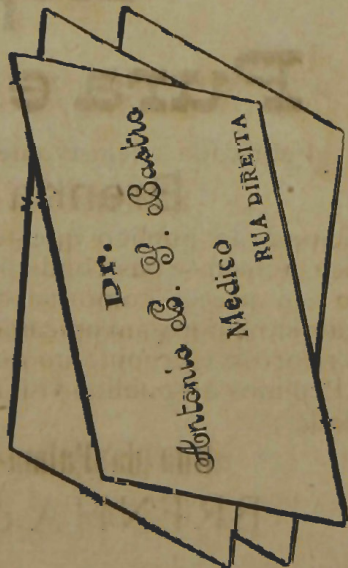 Dr.
Antonio C. S. Castro
Medico
RUA DIREITA